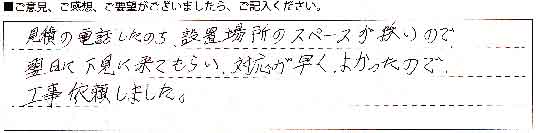 ■ご意見、ご感想、ご要望がございましたら、ご記入ください。
見積の電話したのち、設置場所のスペースが狭いので、
翌日に下見に来てもらい、対応が早く、よかったので、
工事依頼しました。